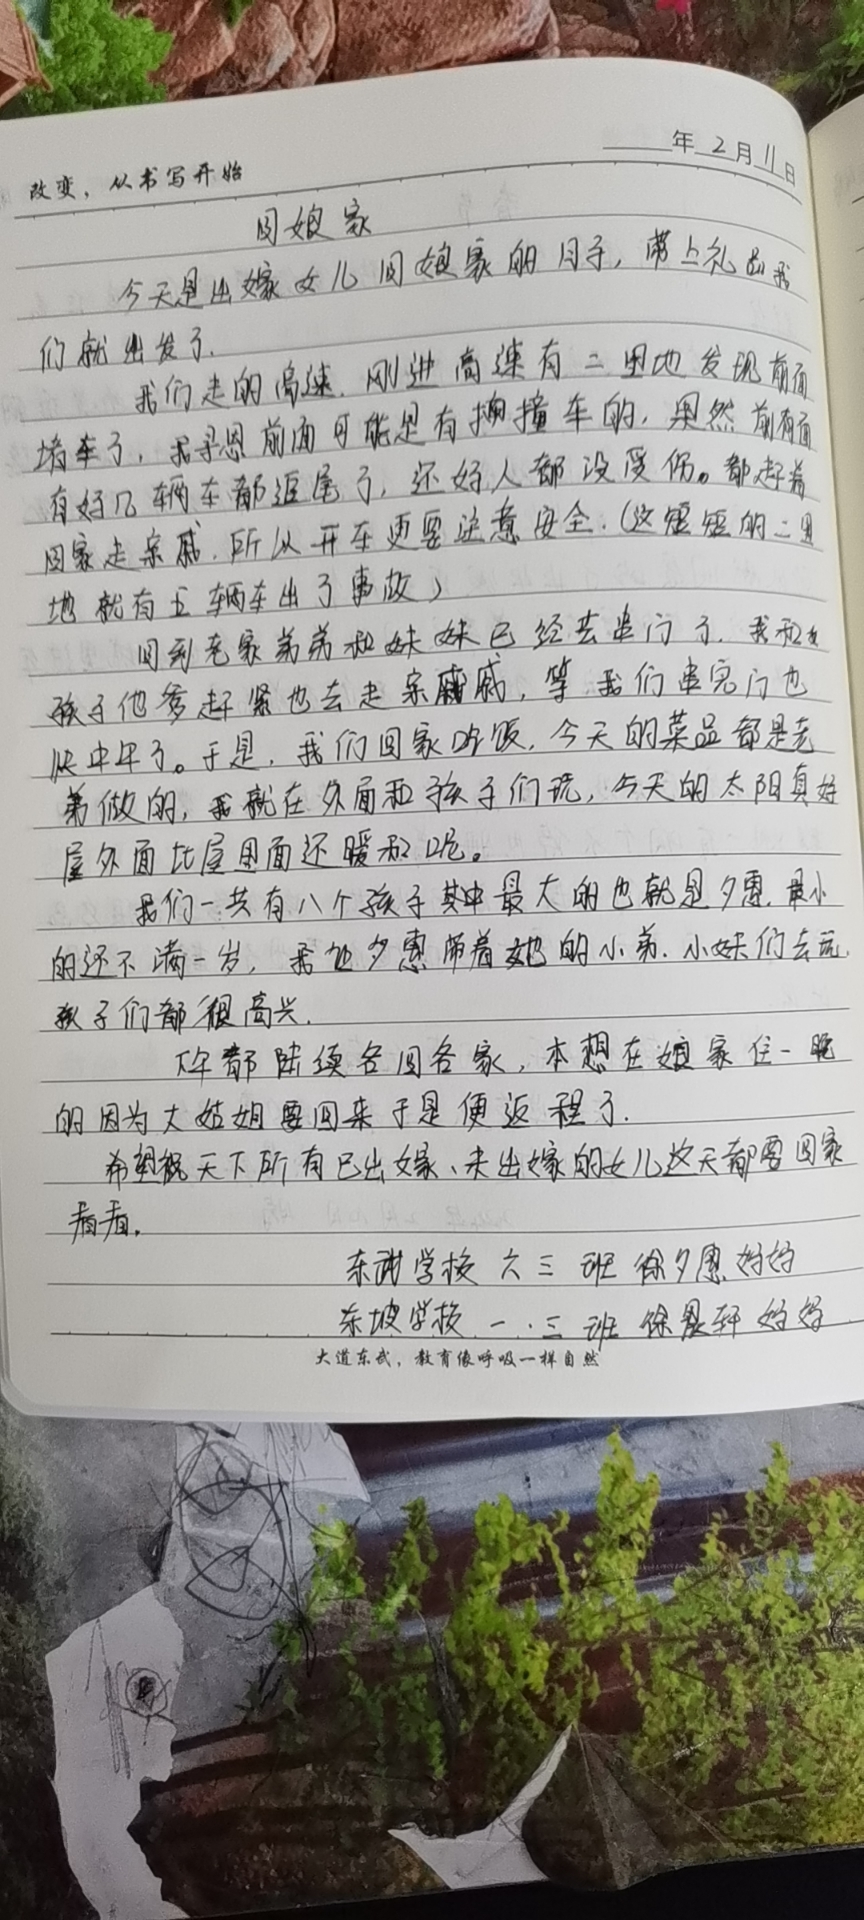 年2月11日
改变，从书写开始
回娘家
今天是出嫁女儿回娘家的日子，带上礼品我
们就出发了.
我们走的高速.刚进高速有二里地发现前面
堵车了，我寻思前面可能是有碰撞车的，果然前面
有好几辆车都追尾了，还好人都没受伤。都赶着
回家走亲戚.所以开车更要注意安全.（这短短的二里
地就有五辆车出了事故）
回到老家弟弟和妹妹已经去串门了.我和
孩子他爹赶紧也去走亲戚，等我们串完门也
快中午了。于是.我们回家吃饭.今天的菜品都是老
弟做的，我就在外面和孩子们玩，今天的太阳真好
屋外面比屋里面还暖和呢。
我们一共有八个孩子其中最大的也就是夕惠.最小
的还不满一岁，我让夕惠带着她的小弟.小妹们去玩.
孩子们都很高兴.
下午都陆续各回各家，本想在娘家住一晚
的因为大姑姐要回来于是便返程了.
希望天下所有已出嫁、未出嫁的女儿这天都要回家
看看.
东坡学校 六三班 徐夕惠妈妈
东坡学校 一.三班 徐晨轩妈妈
大道东武，教育像呼吸一样自然